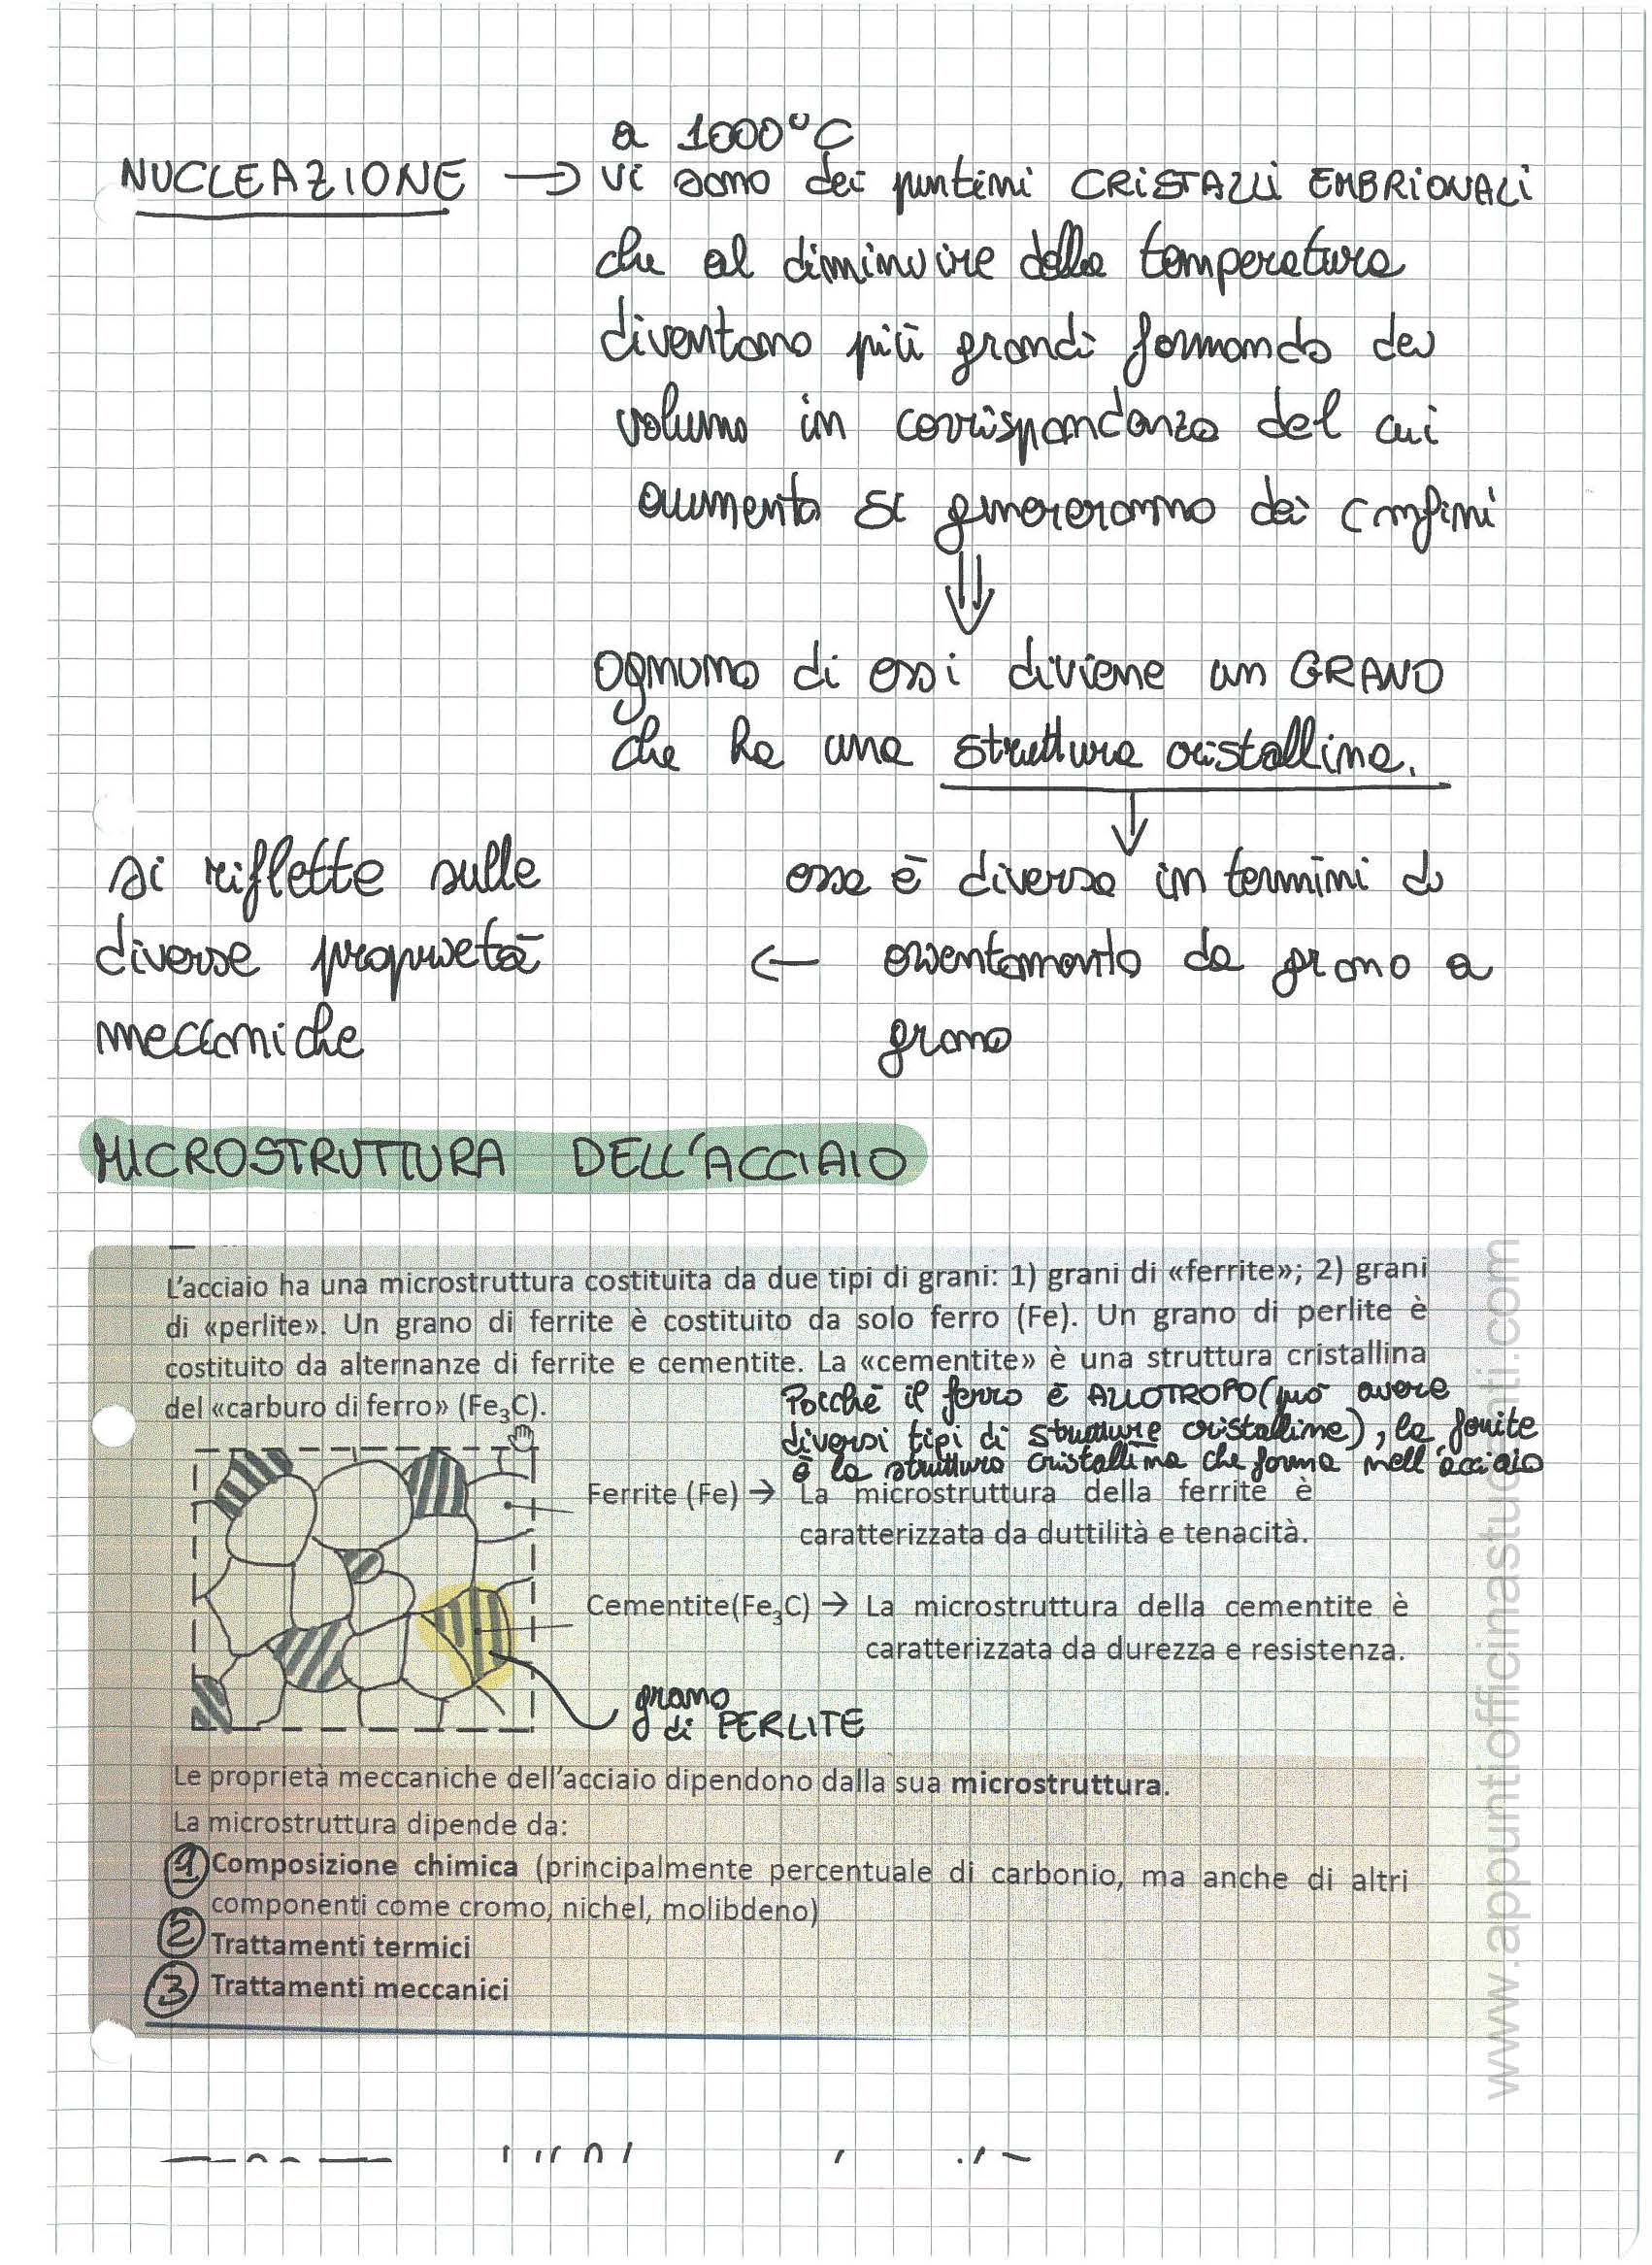 a 1000°C
NUCLEAZIONE → vi sono dei puntini CRISTALLI EMBRIONALI
che al diminuire della temperatura
diventano più grandi formando dei
volumi in corrispondenza del cui
aumento si genereranno dei confini
⇓
Ognuno di essi diviene un GRANO
che ha una struttura cristallina.
↓
essa è diversa in termini di
orientamento da grano a
grano
←
si riflette sulle
diverse proprietà
meccaniche
MICROSTRUTTURA DELL'ACCIAIO
L'acciaio ha una microstruttura costituita da due tipi di grani: 1) grani di «ferrite»; 2) grani
di «perlite». Un grano di ferrite è costituito da solo ferro (Fe). Un grano di perlite è
costituito da alternanze di ferrite e cementite. La «cementite» è una struttura cristallina
del «carburo di ferro» (Fe₃C).
Poiché il ferro è ALLOTROPO (può avere
diversi tipi di strutture cristalline), la ferrite
è la struttura cristallina che forma nell'acciaio
Ferrite (Fe) → La microstruttura della ferrite è
caratterizzata da duttilità e tenacità.
Cementite(Fe₃C) → La microstruttura della cementite è
caratterizzata da durezza e resistenza.
grano
di PERLITE
Le proprietà meccaniche dell'acciaio dipendono dalla sua microstruttura.
La microstruttura dipende da:
1 Composizione chimica (principalmente percentuale di carbonio, ma anche di altri
componenti come cromo, nichel, molibdeno)
2 Trattamenti termici
3 Trattamenti meccanici
www.appuntiofficinastudenti.com